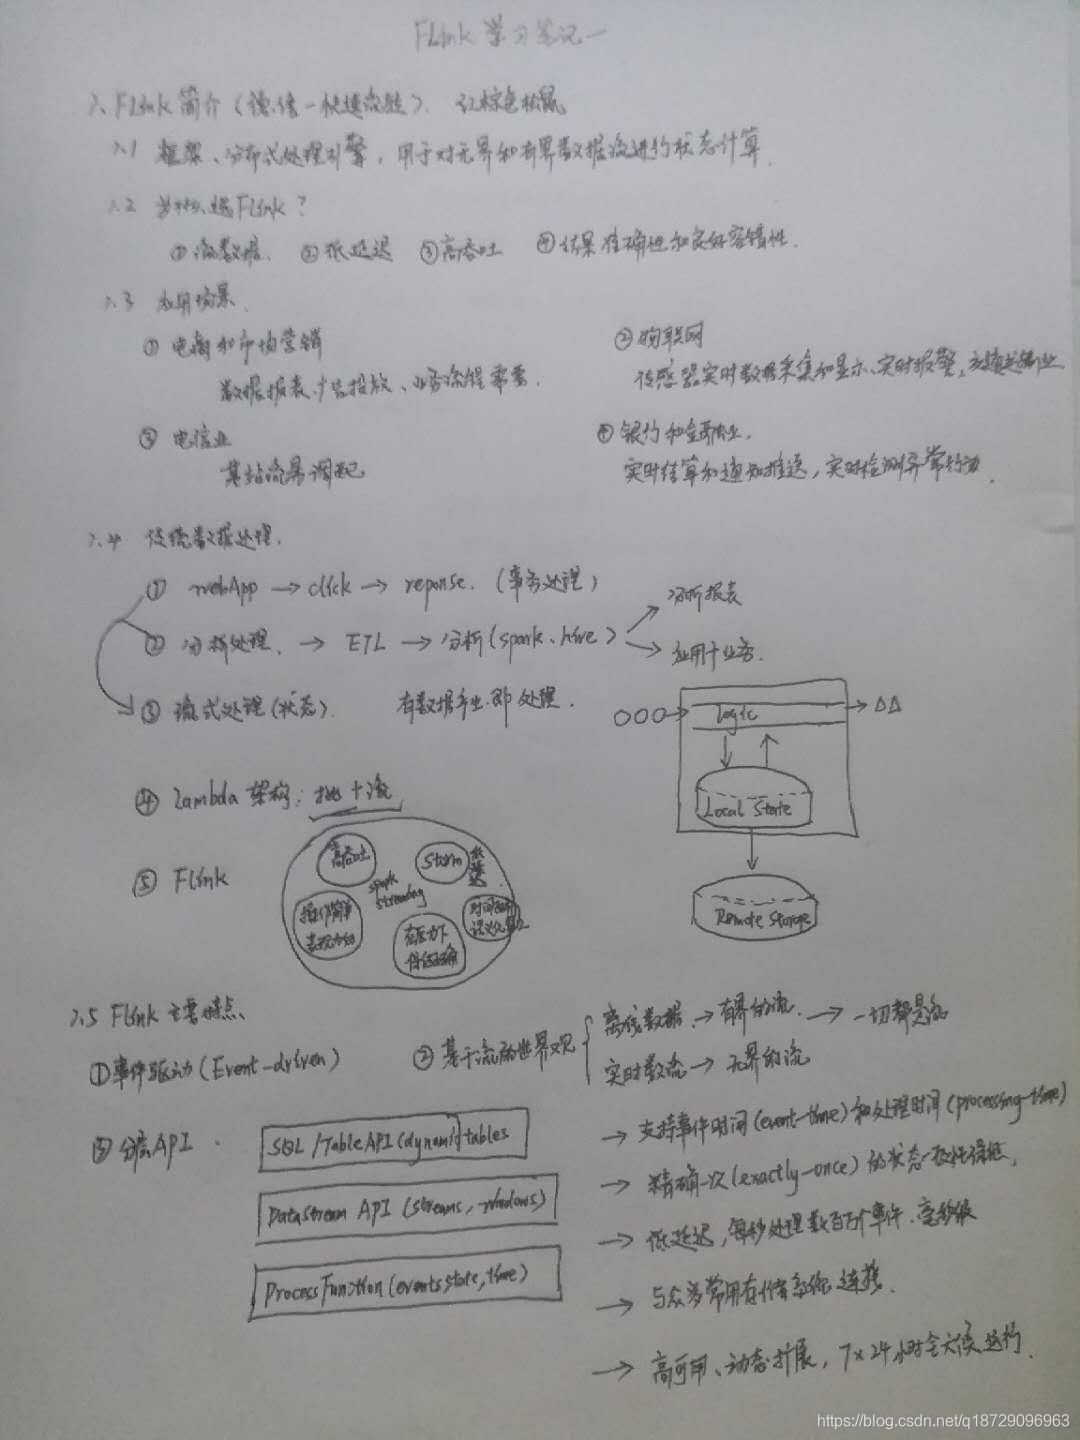 Flink 学习笔记一
1. Flink 简介 (德语-快速灵敏). 红棕色松鼠
1.1 框架、分布式处理引擎，用于对无界和有界数据流进行状态计算.
1.2 为什么选Flink?
① 流数据. ② 低延迟 ③ 高吞吐 ④ 结果准确性和良好容错性.
1.3 应用场景.
① 电商和市场营销
数据报表、广告投放、业务流程需要.
② 物联网
传感器实时数据采集和显示、实时报警，交通运输业
③ 电信业
基站流量调配
④ 银行和金融业.
实时结算和通知推送，实时检测异常行为.
1.4 传统数据处理.
① webApp → click → reponse. (事务处理)
② 分析处理. → ETL → 分析(spark、hive)
分析报表
应用于业务.
③ 流式处理(状态). 有数据产生即处理.
○○○ → Logic → ΔΔ
Local State
Remote Storage
④ Lambda 架构: 批+流
⑤ Flink
高吞吐
Storm
低延迟
spark
streaming
操作简单
表现力好
压力下
保持正确
时间
语义化
1.5 Flink 主要特点、
① 事件驱动(Event-driven)
② 基于流的世界观
离线数据 → 有界的流. → 一切都是流
实时数态 → 无界的流
③ 分层API.
SQL/TableAPI(dynamic tables
DataStream API (streams, windows)
ProcessFunction(events state, time)
→ 支持事件时间(event-time)和处理时间(processing-time)
→ 精确一次(exactly-once)的状态一致性保证.
→ 低延迟，每秒处理数百万个事件、毫秒级
→ 与众多常用存储系统连接.
→ 高可用、动态扩展，7×24小时全天候运行.
https://blog.csdn.net/q18729096963